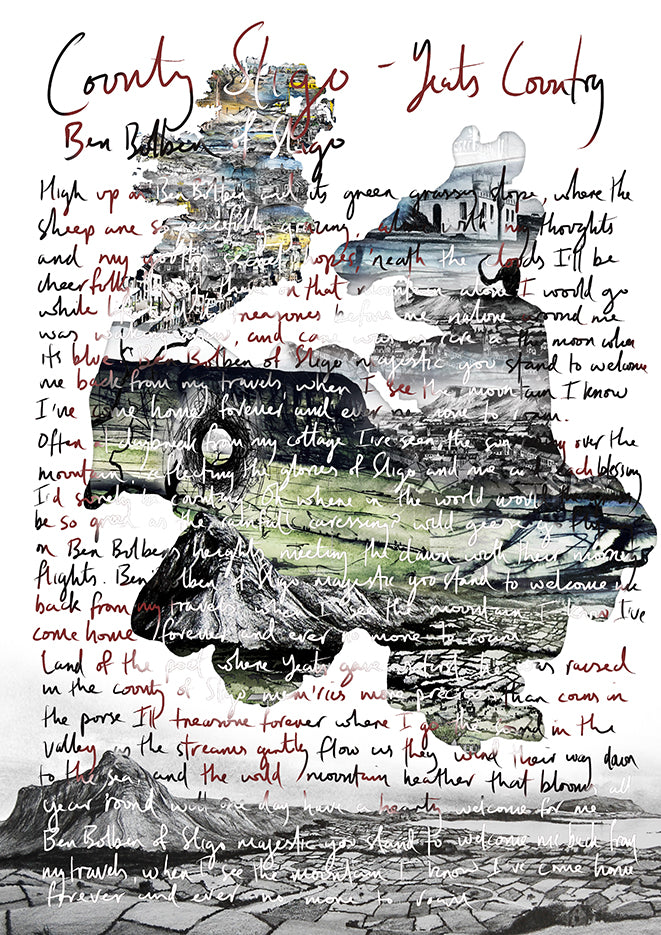 County Sligo - Yeats Country
Ben Bulben of Sligo
High up on Ben Bulben and its green grassy slope, where the
sheep are so peacefully grazing, alone with my thoughts
and my youthful secret hopes, 'neath the clouds I'll be
cheerfully on that mountain alone I would go
while treasures before me nature round me
was and the moon when
its blue Ben Bulben of Sligo majestic you stand to welcome
me back from my travels, when I see the mountain I know
I've come home forever and ever no more to roam.
Often at daybreak from my cottage I've seen, the sun over the
mountain, reflecting the glories of Sligo and me each blessing
I'd surely be counting Oh where in the world would
be so grand as the rainfall caressing? wild geese
on Ben Bulbens heights meeting the dawn with their
flights. Ben Bulben of Sligo majestic you stand to welcome me
back from my travels when I see the mountain I know I've
come home forever and ever no more to roam
Land of the poet where Yeats gave was raised
in the county of Sligo mem'ries more precious than coins in
the purse I'll treasure forever where I go hand in the
valley as the streams gently flow as they wend their way down
to the sea and the wild mountain heather that blooms all
year round will one day have a hearty welcome for me
Ben Bulben of Sligo majestic you stand to welcome me back from
my travels, when I see the mountain I know I've come home
forever and ever no more to roam